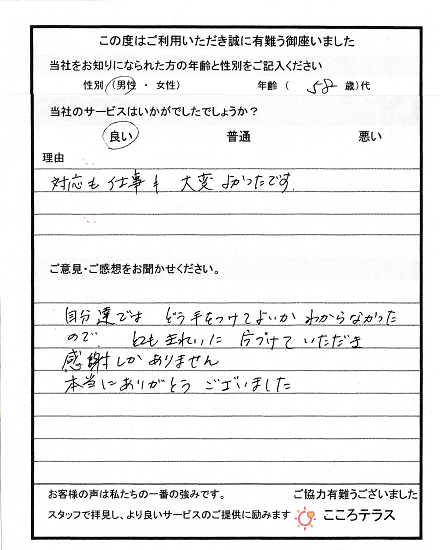 この度はご利用いただき誠に有難う御座いました
当社をお知りになられた方の年齢と性別をご記入ください
性別 (男性 ・ 女性) 年齢 ( 58 歳)代
当社のサービスはいかがでしたでしょうか？
良い 普通 悪い
理由
対応も 仕事も 大変 よかったです
ご意見・ご感想をお聞かせください。
自分達では どう手をつけてよいか わからなかった
ので、 とても きれいに 片づけて いただき
感謝しかありません
本当にありがとう ございました
お客様の声は私たちの一番の強みです。 ご協力有難うございました
スタッフで拝見し、より良いサービスのご提供に励みます こころテラス